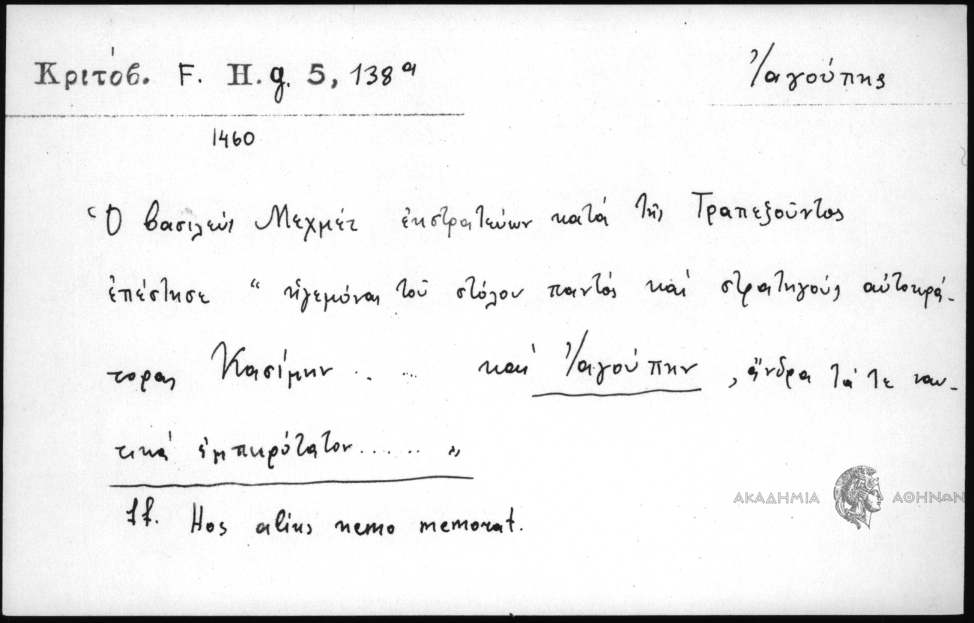 Κριτόβ. F. H. g. 5, 138ᵃ
Ἰαγούπης
1460
Ὁ βασιλεύς Μεχμέτ ἐκστρατεύων κατά τῆς Τραπεζοῦντος
ἐπέστησε " ἡγεμόνας τοῦ στόλου παντός καί στρατηγούς αὐτοκρά-
τορας Κασίμην . ... καί Ἰαγούπην , ἄνδρα τά τε ναυ-
τικά ἐμπειρότατον ...... "
Hos alius nemo memorat.
ΑΚΑΔΗΜΙΑ ΑΘΗΝΩΝ